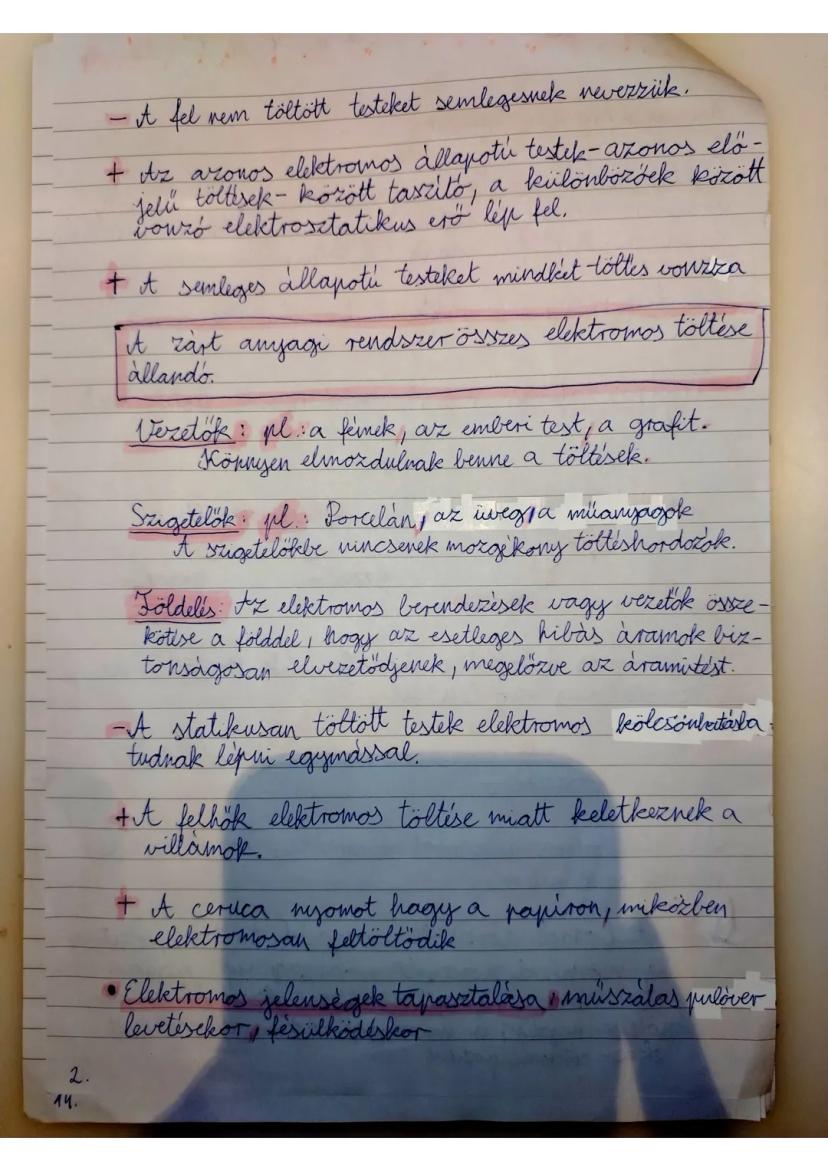 - A fel nem töltött testeket semlegesnek nevezzük.
+ Az azonos elektromos állapotú testek - azonos elő-
jelű töltések - között taszító, a különbözőek között
vonzó elektrosztatikus erő lép fel.
+ A semleges állapotú testeket mindkét töltés vonzza
A zárt anyagi rendszer összes elektromos töltése
állandó.
Vezetők: pl.: a fémek, az emberi test, a grafit.
Könnyen elmozdulnak benne a töltések.
Szigetelők: pl.: Porcelán, az üveg, a műanyagok
A szigetelőkbe nincsenek mozgékony töltéshordozók.
Földelés: Az elektromos berendezések vagy vezetők össze-
kötése a földdel, hogy az esetleges hibás áramok biz-
tonságosan elvezetődjenek, megelőzve az áramütést.
- A statikusan töltött testek elektromos kölcsönhatásba
tudnak lépni egymással.
+ A felhők elektromos töltése miatt keletkeznek a
villámok.
+ A ceruca nyomot hagy a papíron, miközben
elektromosan feltöltődik
• Elektromos jelenségek tapasztalása, műszálas pulóver
levetésekor, fésülködéskor
2.
14.